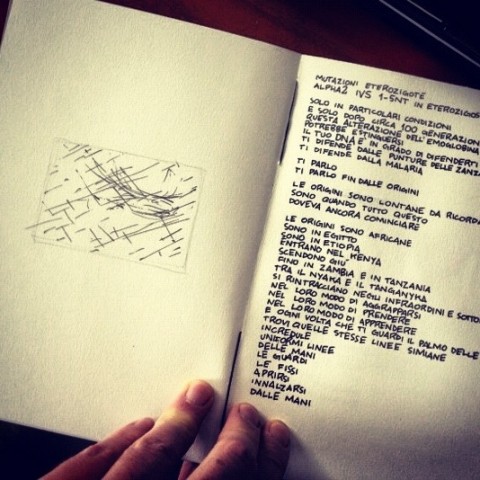 MUTAZIONI ETEROZIGOTE
ALPHA2 IVS 1-5NT IN ETEROZIGOS
SOLO IN PARTICOLARI CONDIZIONI
E SOLO DOPO CIRCA 100 GENERAZION
QUESTA ALTERAZIONE DELL'EMOGLOBINA
POTREBBE ESTINGUERSI
IL TUO DNA È IN GRADO DI DIFENDERTI
TI DIFENDE DALLE PUNTURE DELLE ZANZA
TI DIFENDE DALLA MALARIA
TI PARLO
TI PARLO FIN DALLE ORIGINI
LE ORIGINI SONO LONTANE DA RICORDA
SONO QUANDO TUTTO QUESTO
DOVEVA ANCORA COMINCIARE
LE ORIGINI SONO AFRICANE
SONO IN EGITTO
SONO IN ETIOPIA
ENTRANO NEL KENYA
SCENDONO GIÙ
FINO IN ZAMBIA E IN TANZANIA
TRA IL NYAKA E IL TANGANYKA
SI RINTRACCIANO NEGLI INFRAORDINI E SOTTO
NEL LORO MODO DI AGGRAPPARSI
NEL LORO MODO DI PRENDERE
NEL LORO MODO DI APPRENDERE
E OGNI VOLTA CHE TI GUARDI IL PALMO DELLE
TROVI QUELLE STESSE LINEE SIMIANE
INCREDULE
UNIFORMI LINEE
DELLE MANI
LE GUARDI
LE FISSI
APRIRSI
INNALZARSI
DALLE MANI